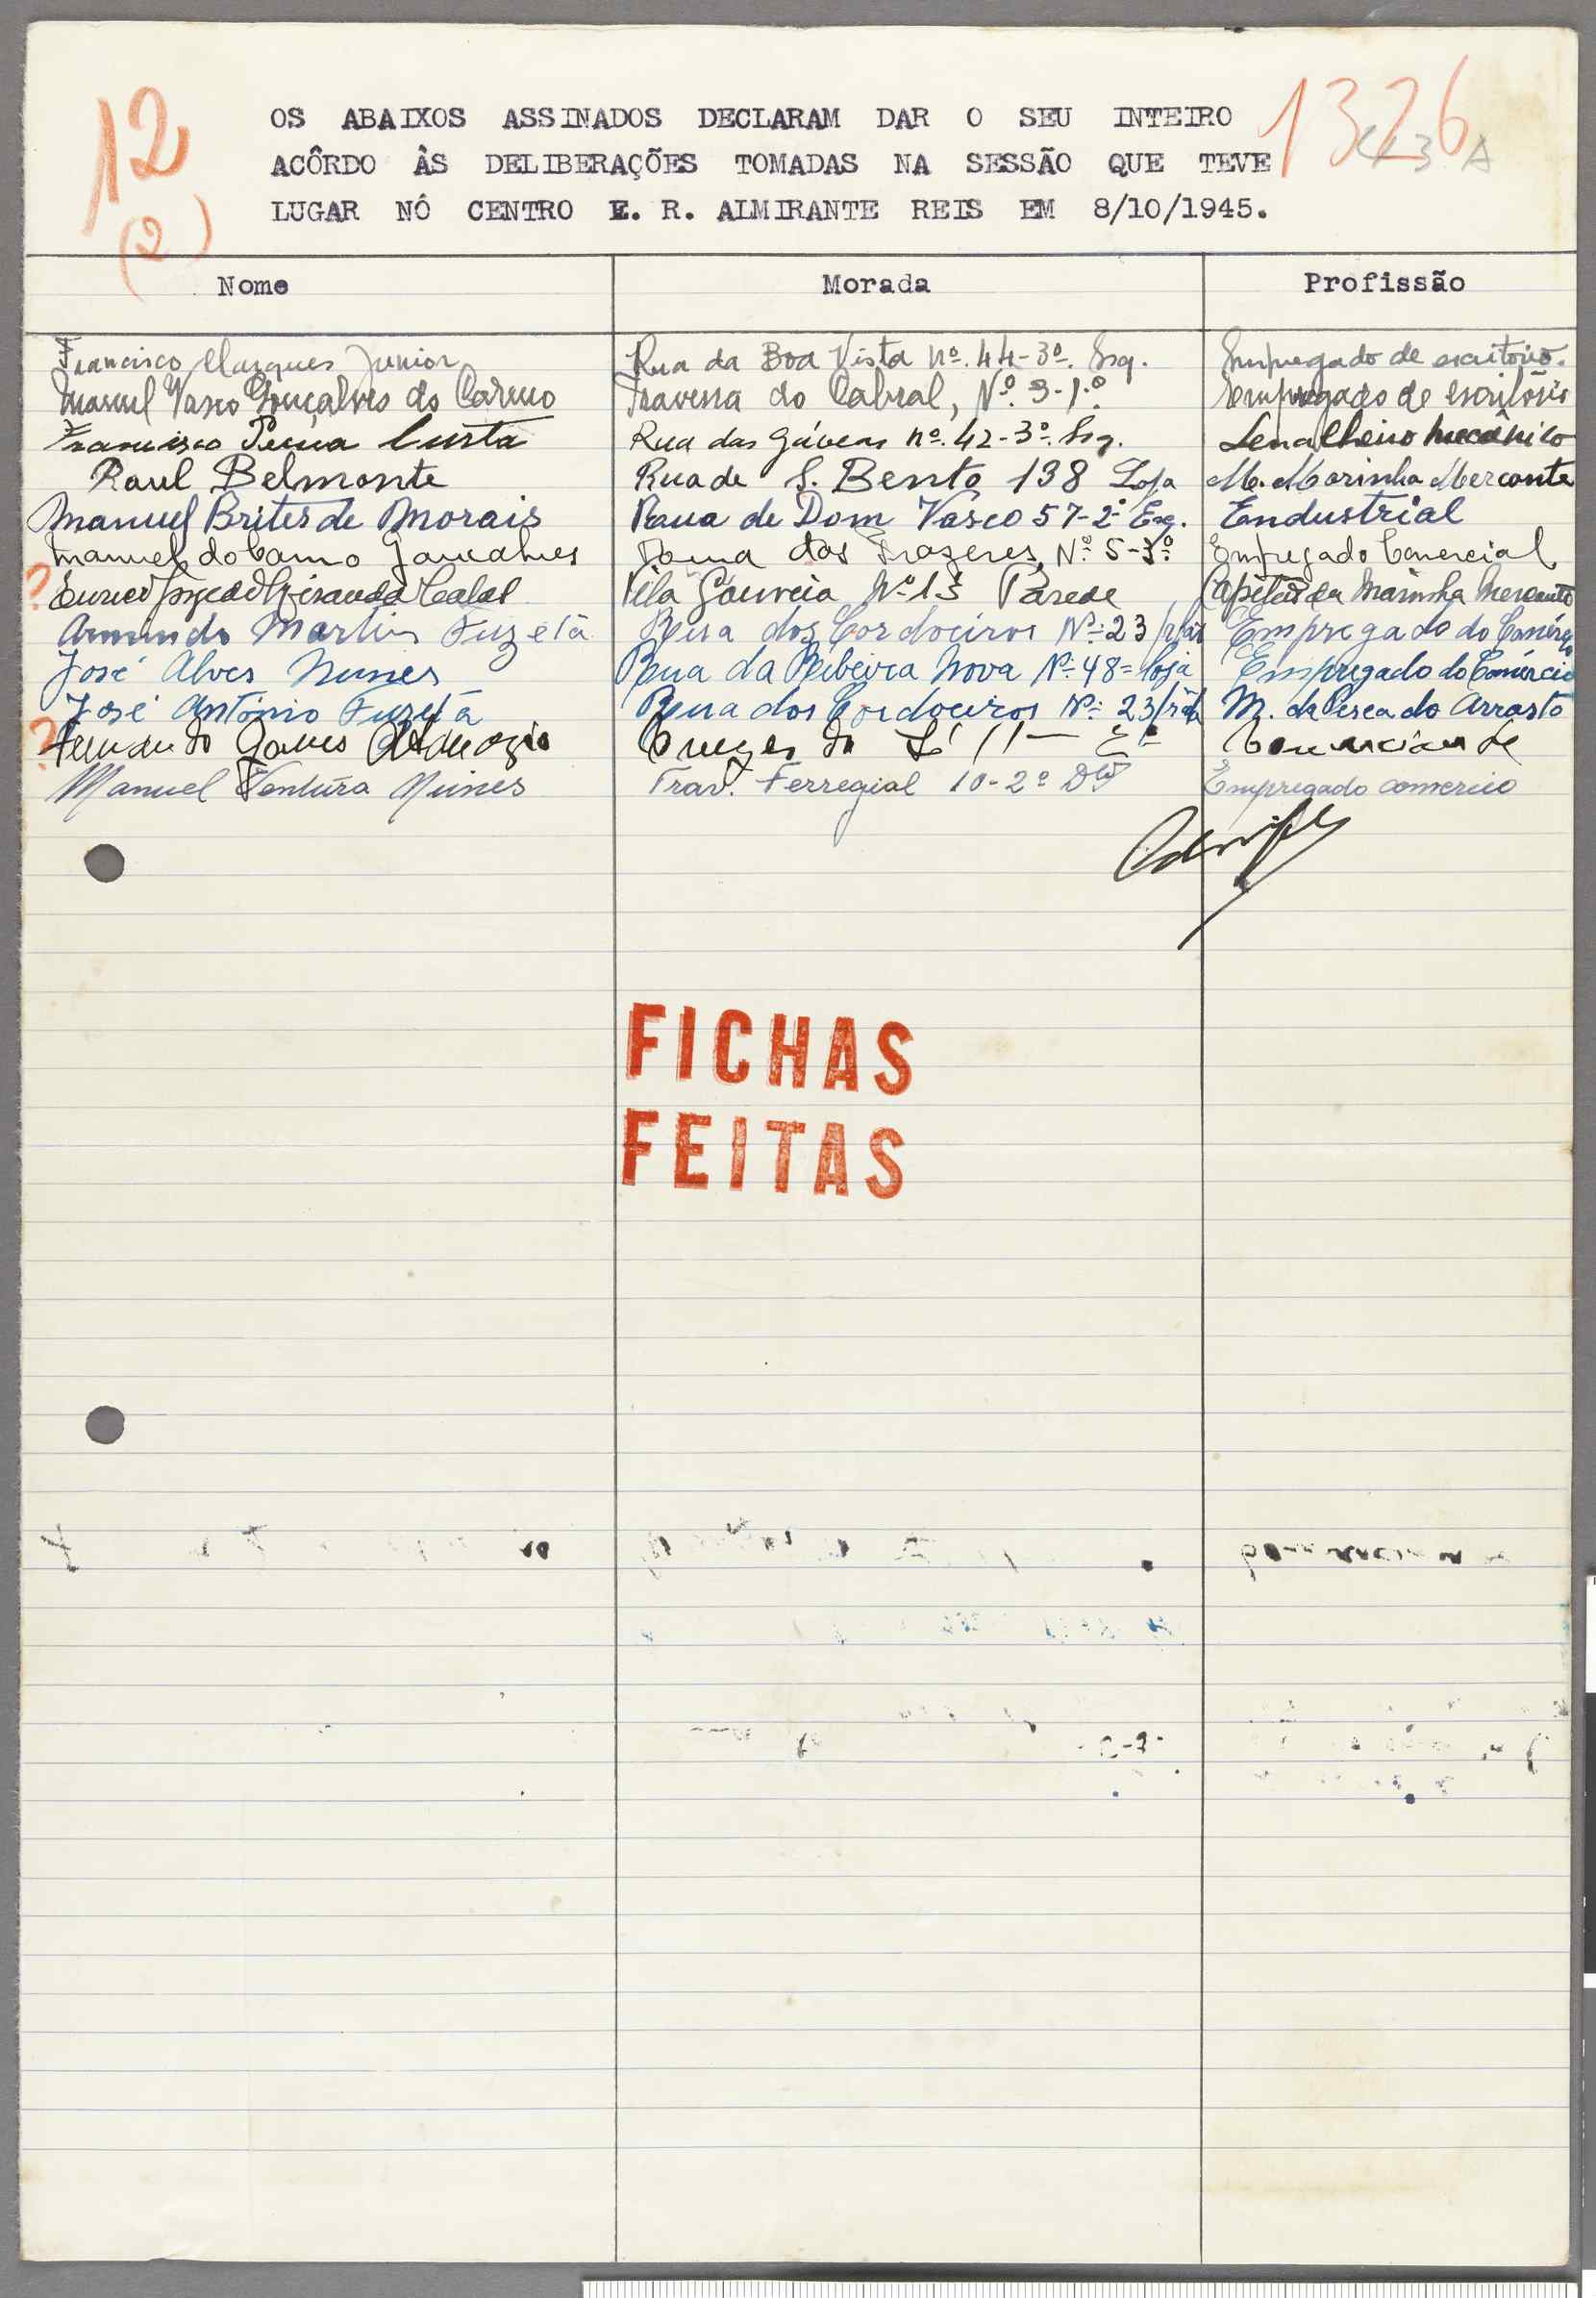 12
(2)
1326
OS ABAIXOS ASSINADOS DECLARAM DAR O SEU INTEIRO
ACÔRDO ÀS DELIBERAÇÕES TOMADAS NA SESSÃO QUE TEVE
LUGAR NÓ CENTRO E. R. ALMIRANTE REIS EM 8/10/1945.
Nome Morada Profissão
Francisco Marques Junior Rua da Boa Vista nº. 44-3º. Esq. Empregado de escritorio.
Manuel Vasco Gonçalves do Carmo Travessa do Cabral, Nº. 9-1.º Empregado de escritório
Francisco Costa Rua das Gáveas nº. 42-3º. Esq. Serralheiro mecânico
Raul Belmonte Rua de S. Bento 138 Loja M. Marinha Mercante
Manuel Brites de Morais Raua de Dom Vasco 57-2º Esq. Endustrial
Manuel do Carmo Goncalves dos Prazeres Nº. 5-3º Empregado Comercial
? Eurico Vila Gouveia Nº 13 Parede Capitão da Marinha Mercante
Armindo Martins Fuzetá Rua dos Cordoeiros Nº: 23 Empregado do Comércio
José Alves Nunes Rua da Ribeira Nova Nº 48= loja Empregado do Comércio
José António Fuzetá Rua dos Cordoeiros Nº: 23 M. da Pesca do Arrasto
? Fernando Gomes Cruzes da Sé 11 Comerciante
Manuel Ventura Nunes Trav. Ferregial 10-2º Dtº Empregado comercio
FICHAS
FEITAS